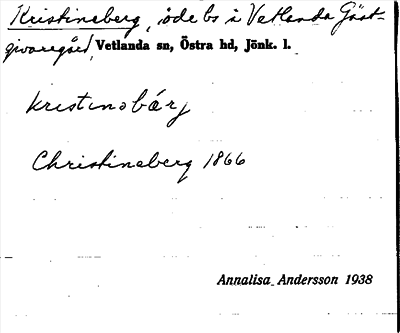 Kristineberg, öde ls i Vetlanda Gäst-
givaregård, Vetlanda sn, Östra hd, Jönk. l.
kristinəbárj
Christineberg 1866
Annalisa Andersson 1938